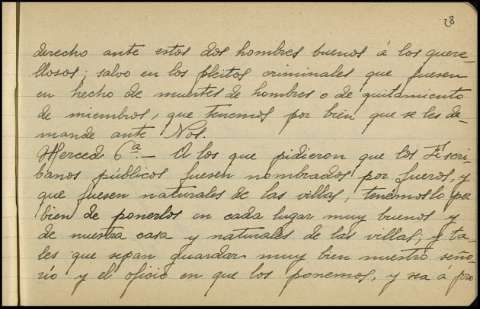 28
derecho ante estos dos hombres buenos á los quere-
llosos; salvo en los pleitos criminales que fuesen
en hecho de muertes de hombres o de quitamiento
de miembros, que tenemos por bien que se les de-
mande ante Nos.
Merced 6ª.- A los que pidieron que los Escri-
banos públicos fuesen nombrados por fueros, y
que fuesen naturales de las villas, tenemoslo por
bien de ponerlos en cada lugar muy buenos y
de nuestra casa y naturales de las villas, y ta-
les que sepan guardar muy bien nuestro seño-
río y el oficio en que los ponemos, y sea á pro